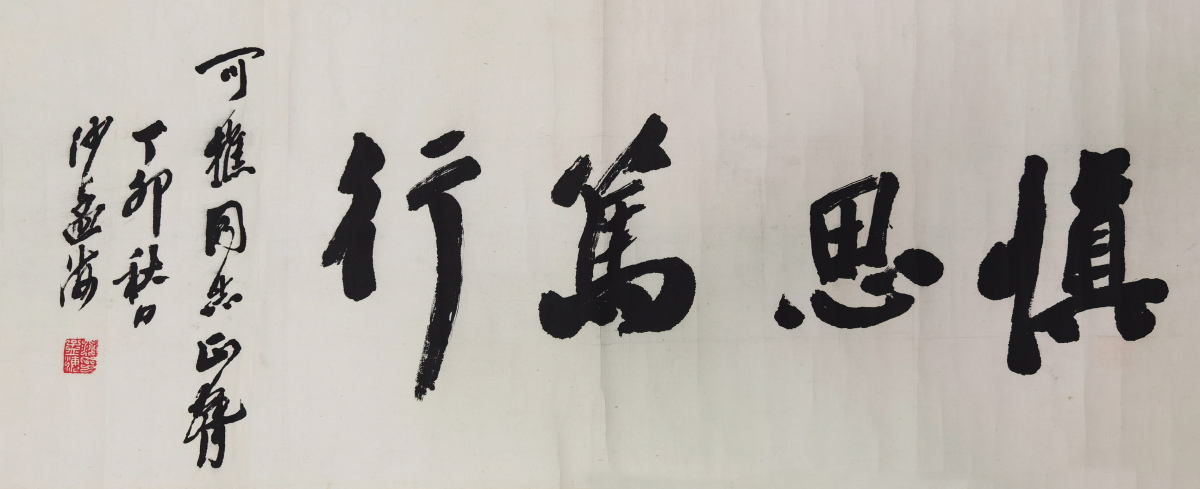 慎思篤行
可樵同志正臂
丁卯秋日
沙孟海